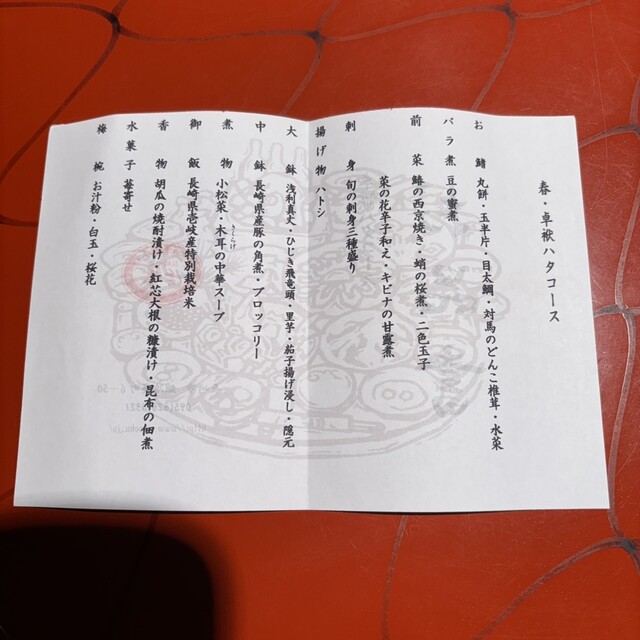 春・卓袱ハタコース
お鰭 丸餅・玉半片・目太鯛・対馬のどんこ椎茸・水菜
バラ煮 豆の蜜煮
前菜 鰆の西京焼き・蛸の桜煮・二色玉子
菜の花辛子和え・キビナの甘露煮
刺身 旬の刺身三種盛り
揚げ物 ハトシ
大鉢 浅利真丈・ひじき飛竜頭・里芋・茄子揚げ浸し・隠元
中鉢 長崎県産豚の角煮・ブロッコリー
煮物 小松菜・木耳の中華スープ
きくらげ
御飯 長崎県壱岐産特別栽培米
香物 胡瓜の焼酎漬け・紅芯大根の糠漬け・昆布の佃煮
水菓子 苺寄せ
梅椀 お汁粉・白玉・桜花